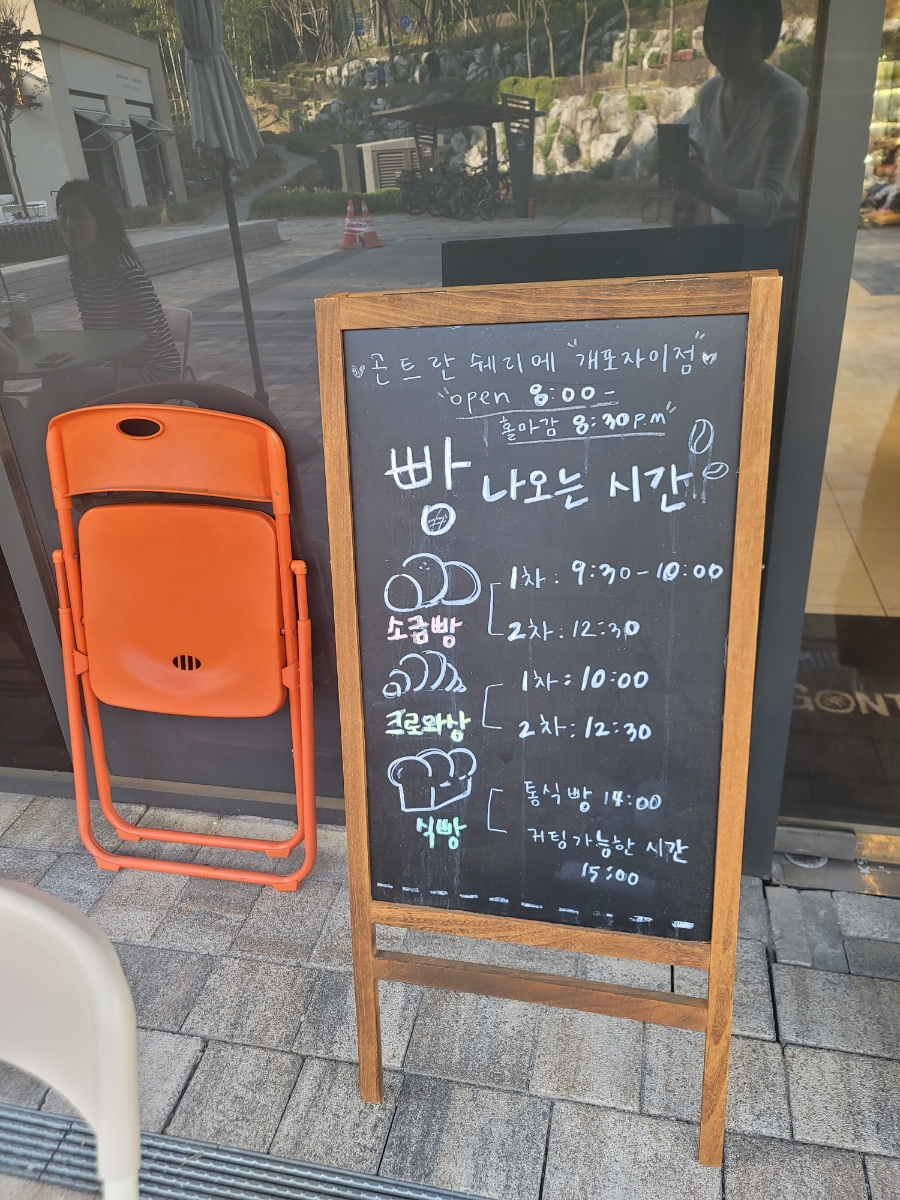 곤트란 쉐리에 "개포자이점"
"open 8:00-
홀마감 8:30P.M"
빵 나오는 시간
소금빵
1차: 9:30-10:00
2차: 12:30
크로와상
1차: 10:00
2차: 12:30
식빵
통식빵 14:00
커팅가능한 시간
15:00
GONT